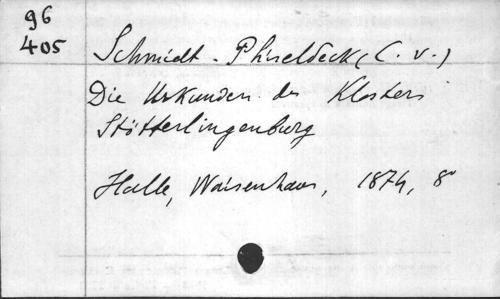 96
405
Schmidt - Phiseldeck (C. v.)
Die Urkunden des Klosters
Stötterlingenburg
Halle, Waisenhaus, 1874, 8°